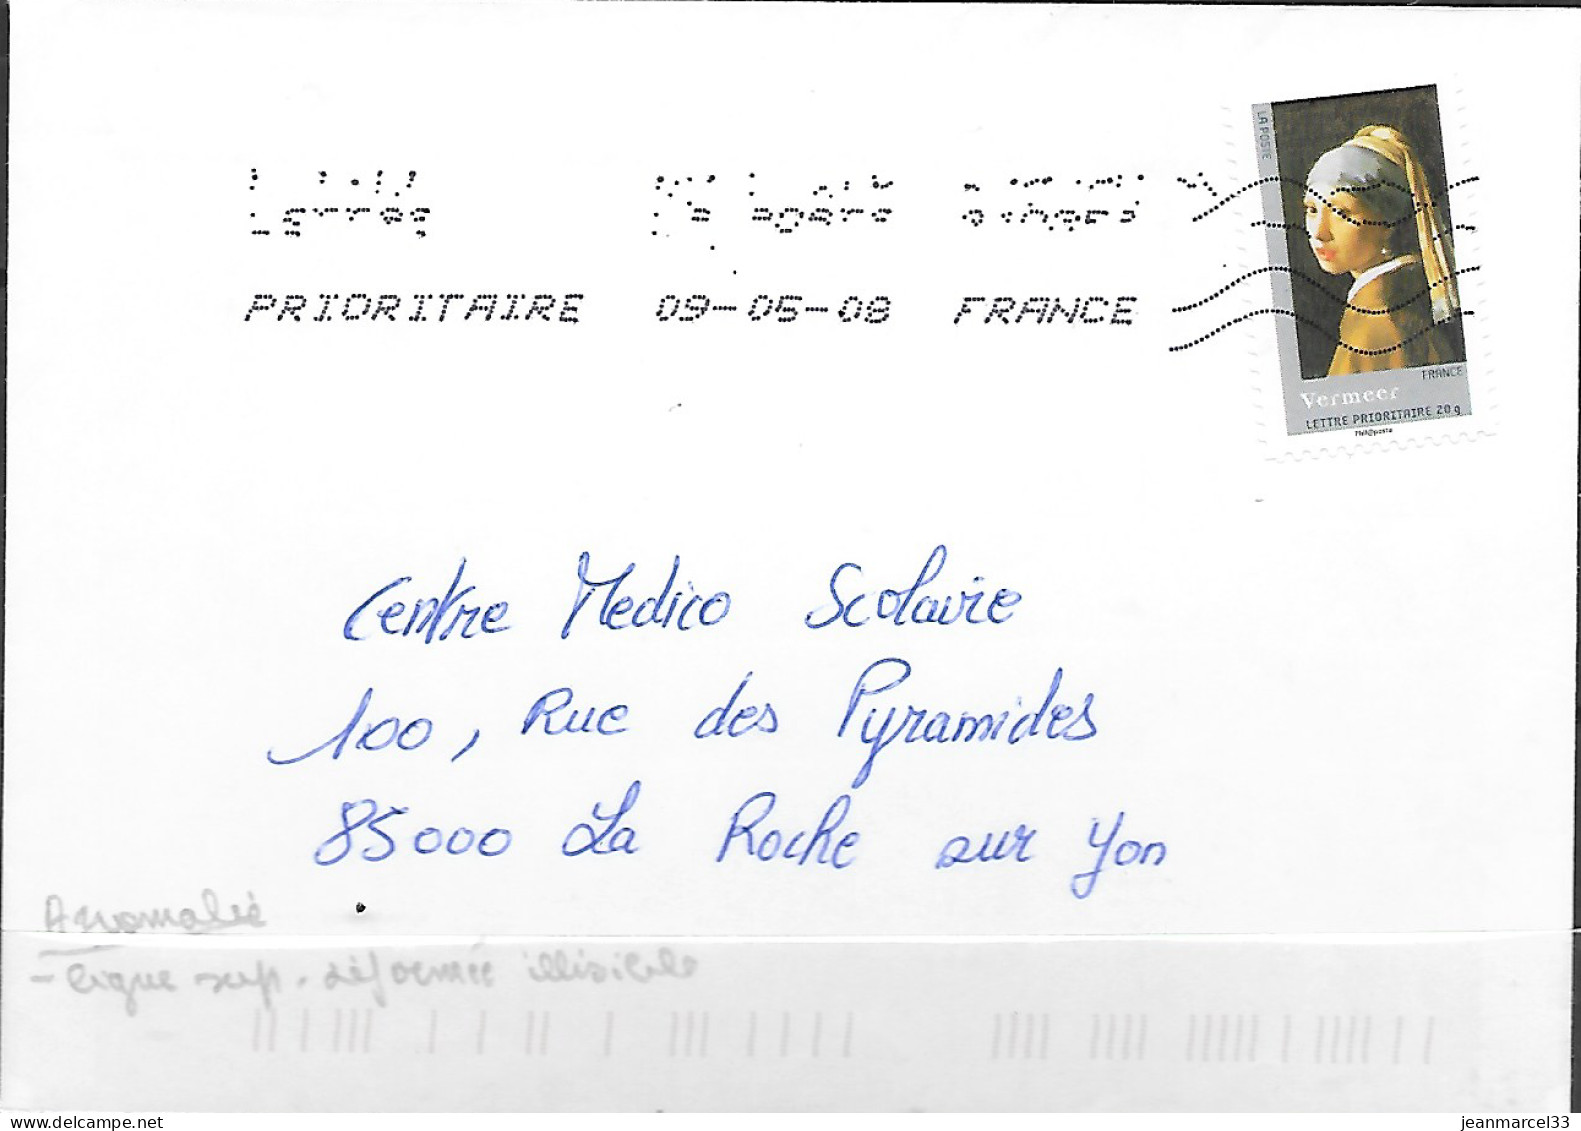 PRIORITAIRE 09-05-08 FRANCE
LA POSTE
FRANCE
Vermeer
LETTRE PRIORITAIRE 20g
Phil@poste
Centre Medico Scolaire
100, Rue des Pyramides
85000 La Roche sur Yon
Anomalie
- ligne sup. déformée illisible
delcampe.net
jeanmarcel33